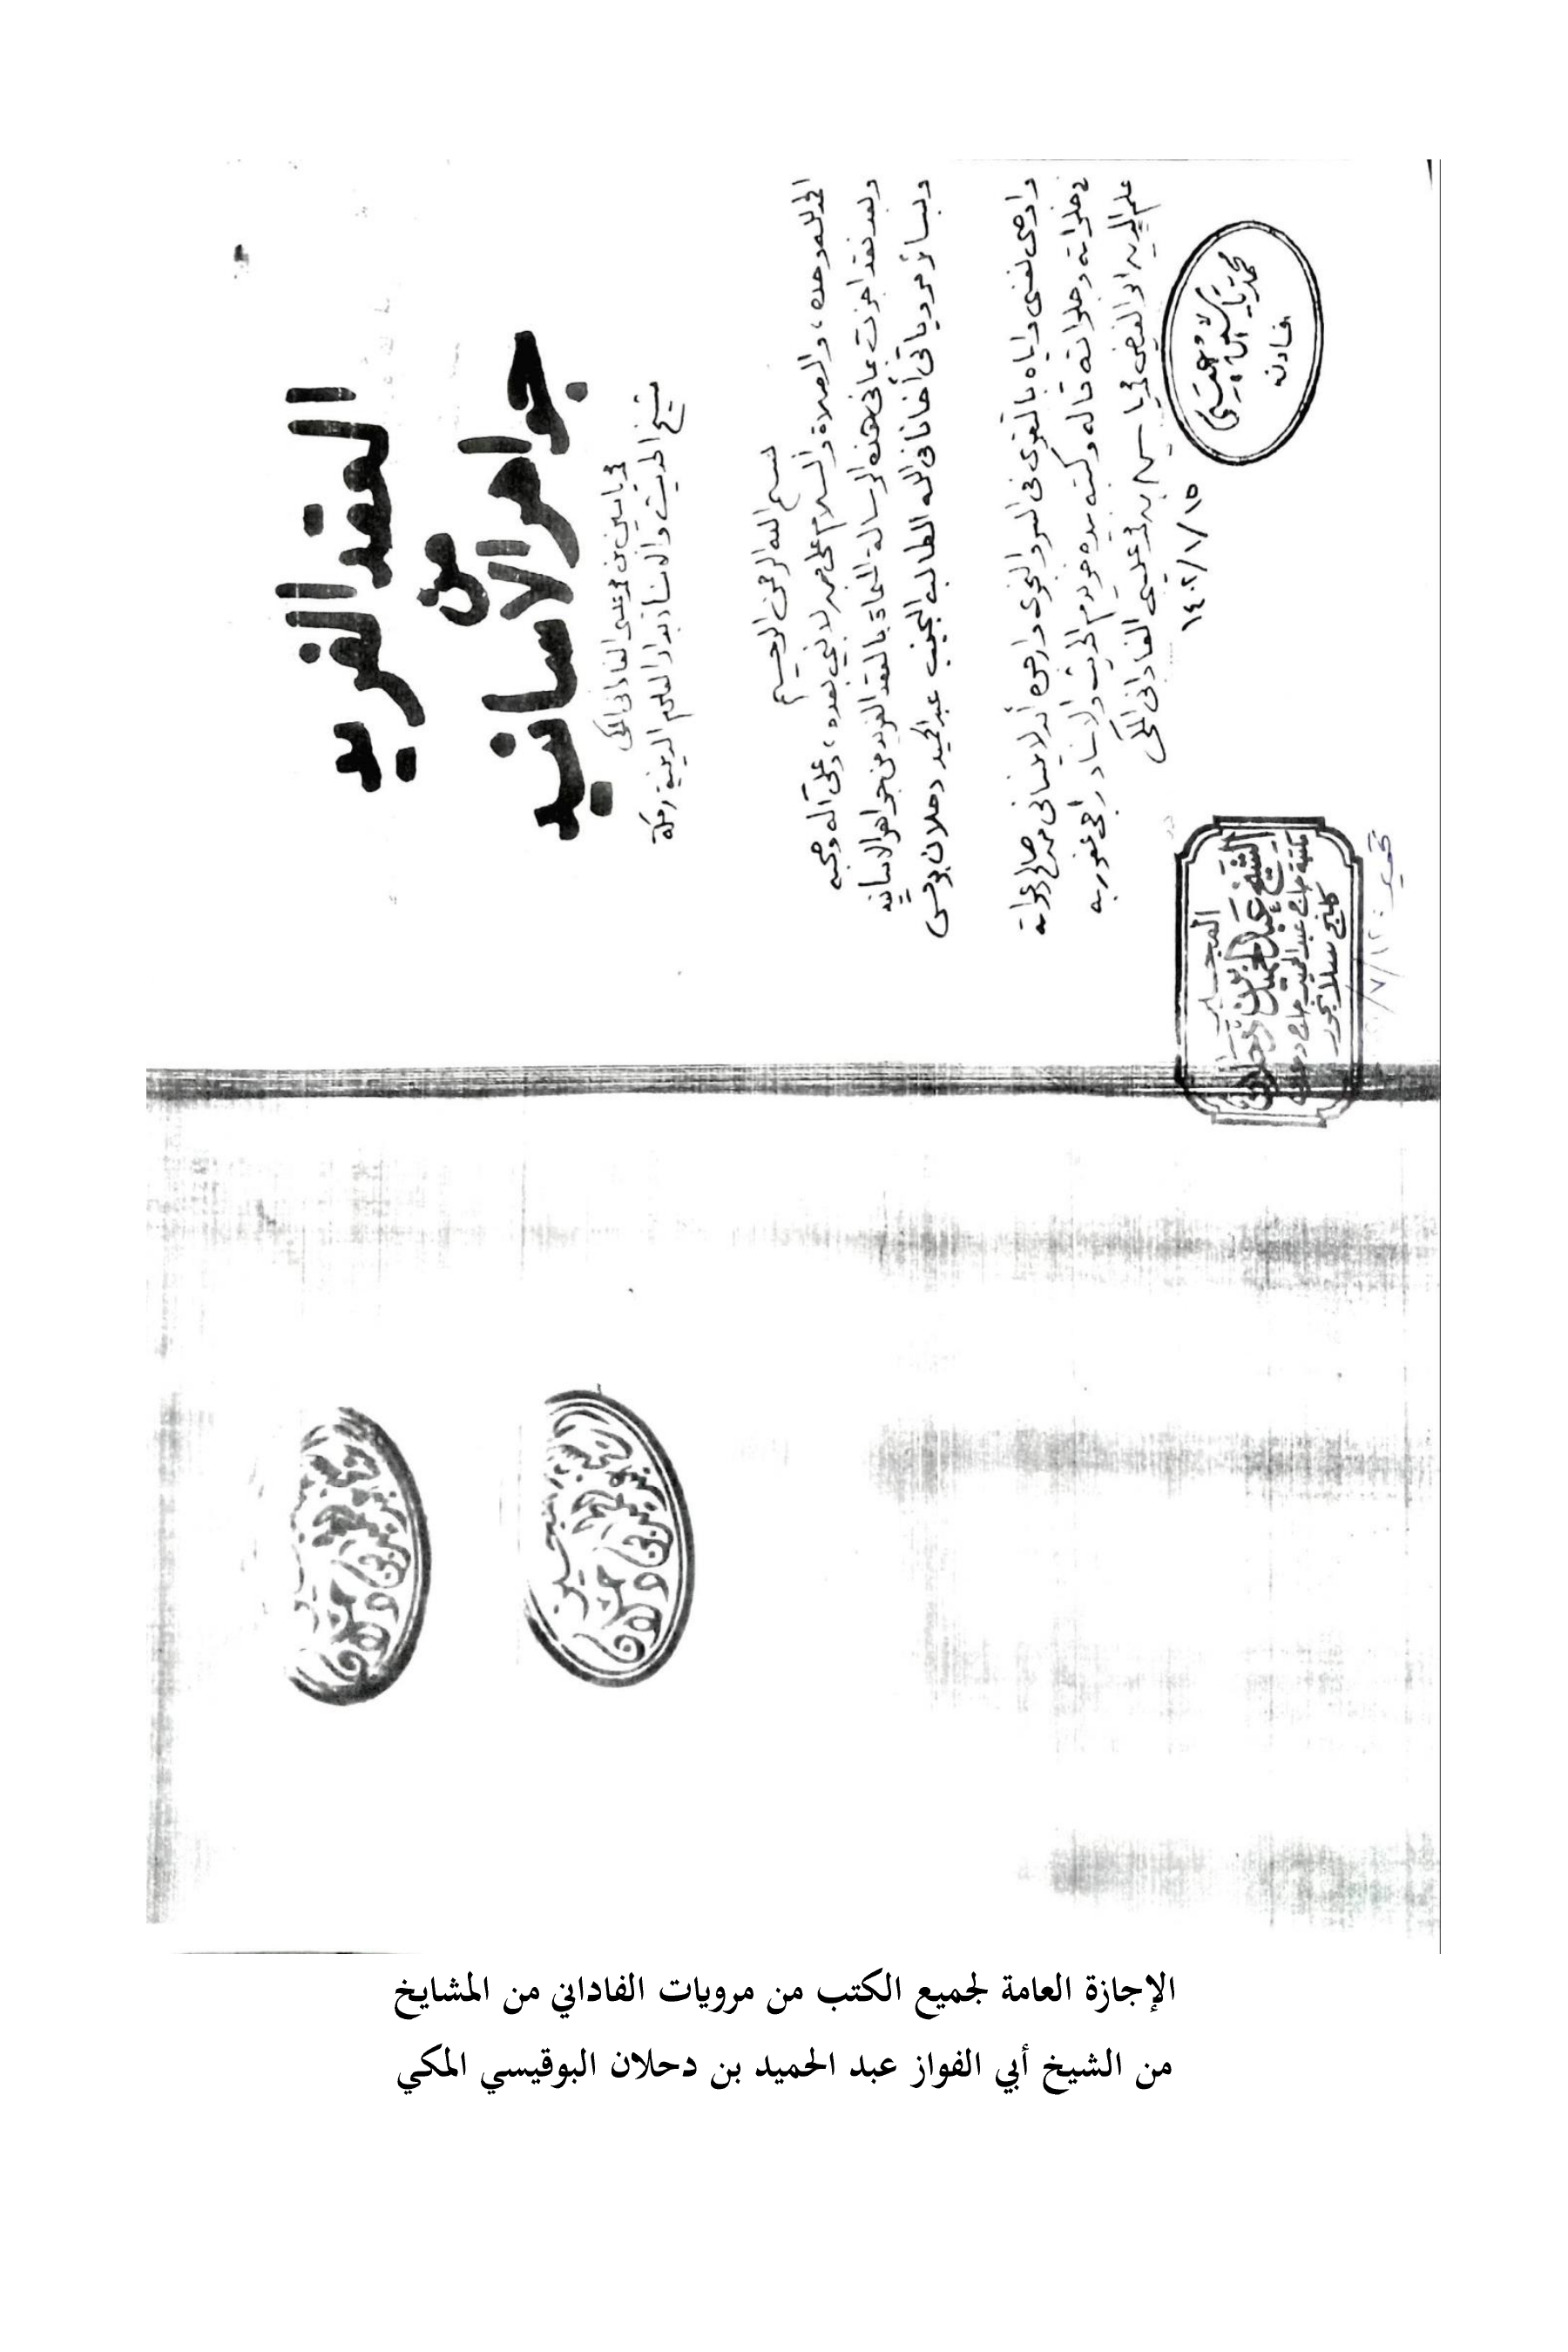 العقد الفريد
من
جواهر الأسانيد
محمد ياسين بن محمد عيسى الفاداني المكي
شيخ الحديث والإسناد بدار العلوم الدينية بمكة
بسم الله الرحمن الرحيم
الحمد لله وحده، والصلاة والسلام على من لا نبي بعده، وعلى آله وصحبه
وبعد فقد اجزت بما في هذه الرسالة المسماة بالعقد الفريد من جواهر الاسانيد
وبسائر مروياتي أخانا في الله الطالب النجيب عبد الحميد دحلان بوقس
واوصي نفسي واياه بالتقوى في السر والنجوى وارجوه أن لا ينساني من صالح دعواته
في خلواته وجلواته قاله وكتبه بيده خويدم الحديث والاسناد راجي عفو ربه
علم الدين ابو الفيض محمد ياسين بن محمد عيسى الفاداني المكي
١٤٠٢/١/١٥
محمد ياسين عيسى
فادنه
المجيز
الشيخ عبد الحميد بن دحلان
الإجازة العامة لجميع الكتب من مرويات الفاداني من المشايخ
من الشيخ أبي الفواز عبد الحميد بن دحلان البوقيسي المكي